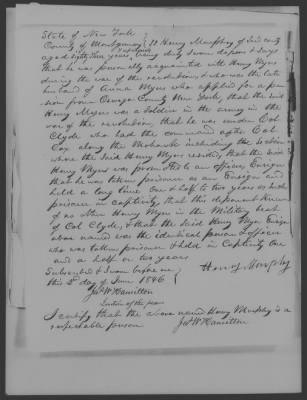 State of New York
County of Montgomery SS Henry Murphey of said county
aged eighty three years, being duly sworn deposes & says
that he was personally acquainted with Henry Myers
during the war of the revolution & who was the late
husband of Anna Myers who applied for a pen
sion from Otsego County New York, that the said
Henry Myers was a soldier in the army in the
war of the revolution, that he was under Col
Clyde who had the command after Col
Cox along the Mohawk including the
where the said Henry Myers resided, that the said
Henry Myers was promoted to an officer, Ensign
that he was taken prisoner as an Ensign and
held a long time One & half to two years as such
prisoner in captivity, that this deponent knew
of no other Henry Myers in the Militia,
of Col Clyde, & that the said Henry Myers Ensign
above named was the identical person & officer
who was taken prisoner & held in Captivity One
and a half or two years
Subscribed & Sworn before me
this 2d day of June 1846
Henry Murphy
Jas W Hamilton
Justice of the peace
I certify that the above named Henry Murphy is a
respectable person
Jas W Hamilton